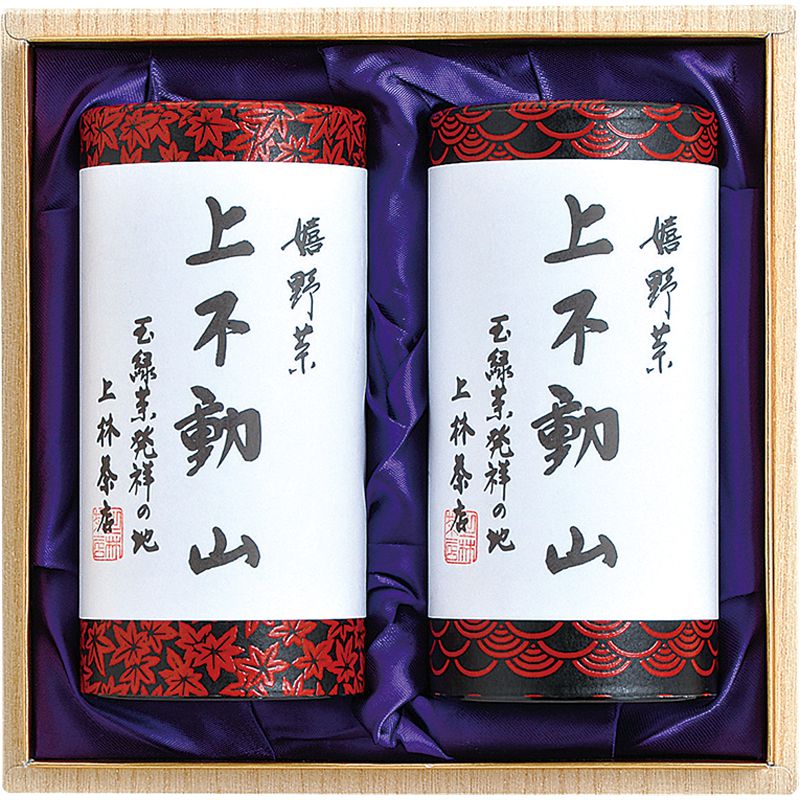 嬉野茶
上不動山
玉緑茶発祥の地
上林茶店
嬉野茶
上不動山
玉緑茶発祥の地
上林茶店